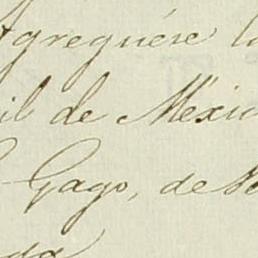 Agreguése l
il de Méxic
Gago, de